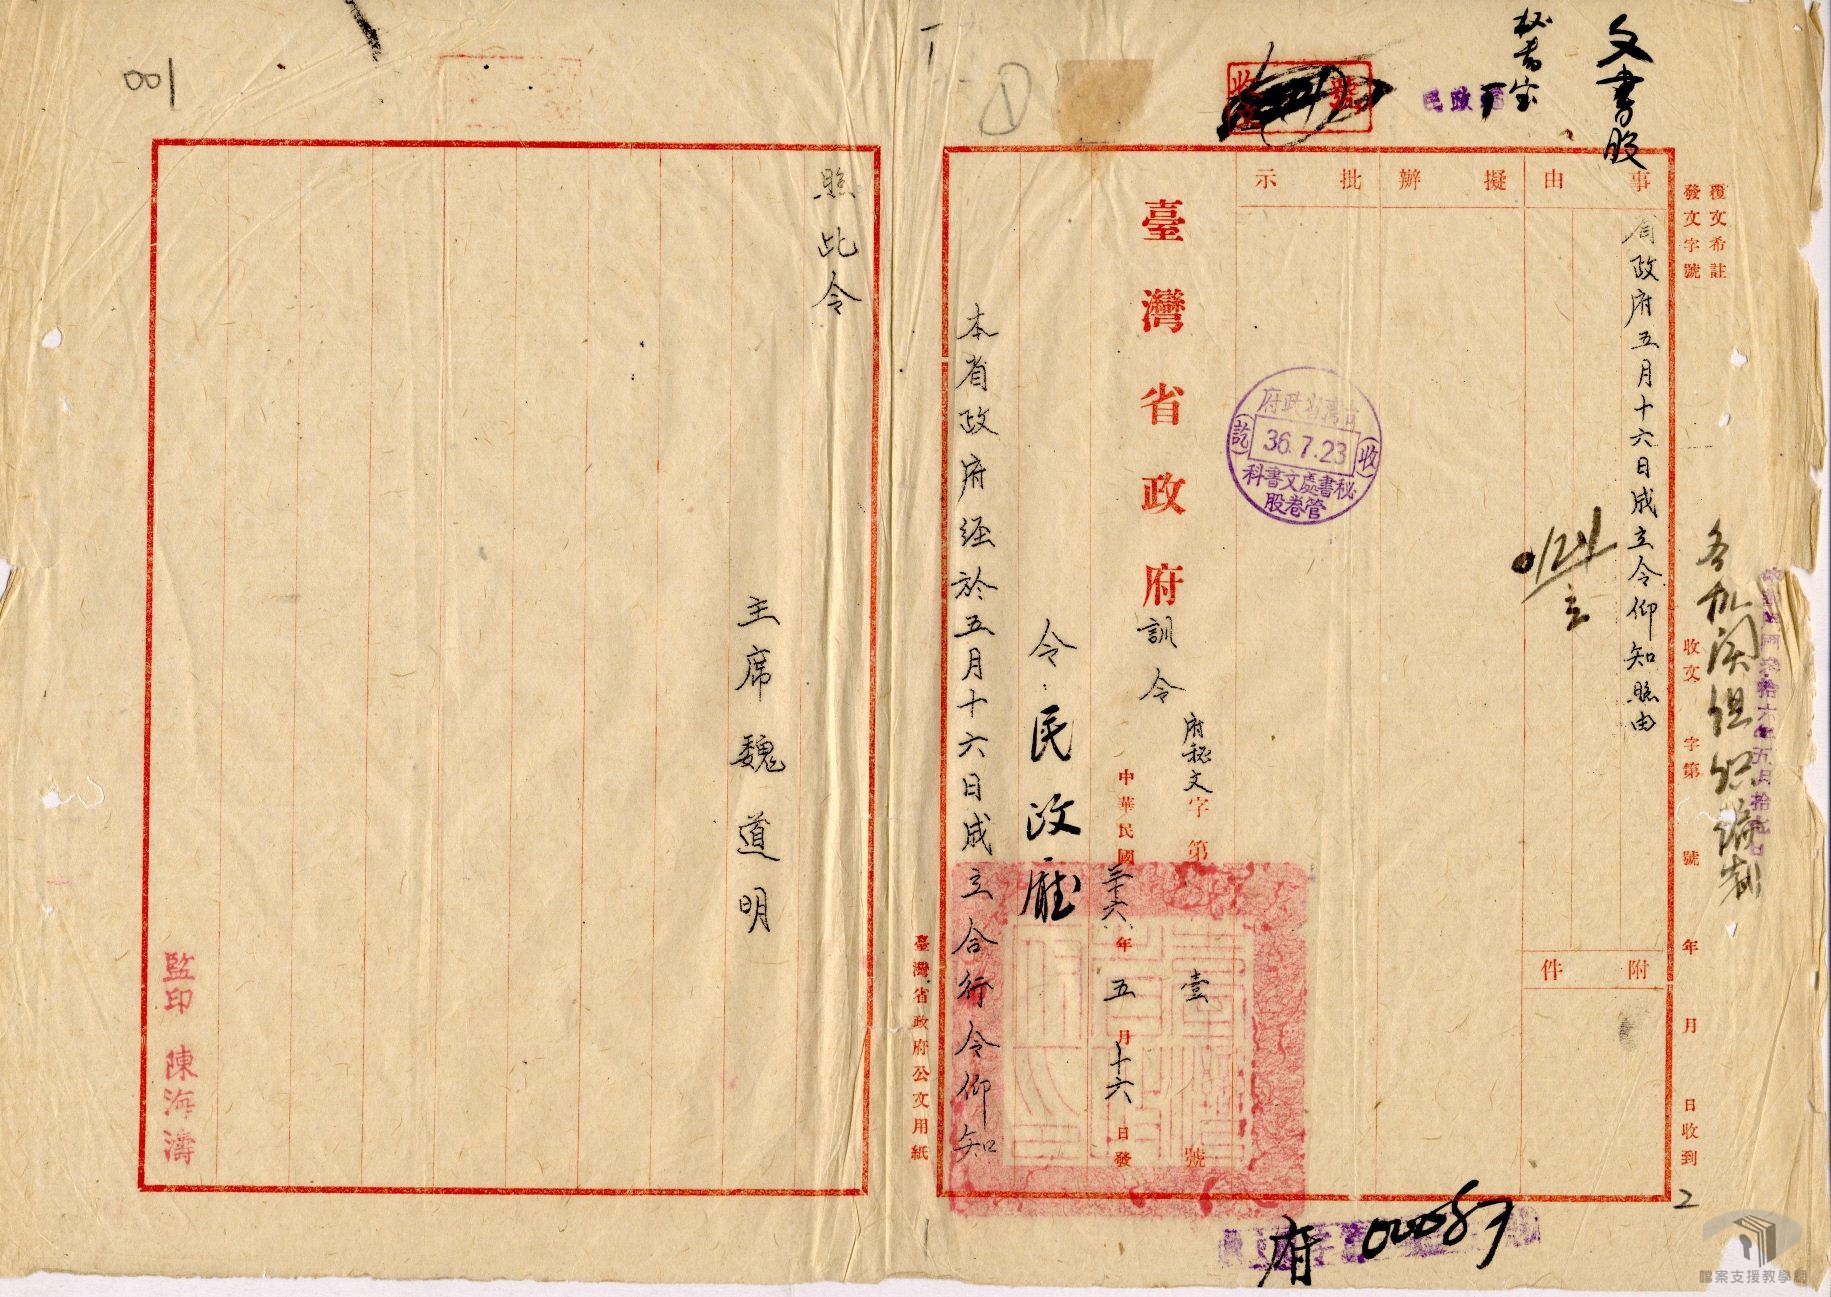 文書股
秘書室
民政
覆文希註
發文字號
收文 字第 號 年 月 日收到
各機關組織編制
事由
省政府五月十六日成立令仰知照由
附件
擬辦
批示
收
號
台灣省政府
收
36.7.23
訖
秘書處文書科
管卷股
臺灣省政府訓令
府秘文字第壹號
中華民國三十六年五月十六日發
令民政廳
本省政府經於五月十六日成立合行令仰知
照此令
主席魏道明
監印 陳海濤
臺灣省政府公文用紙
府
001
1
2
檔案支援教學網